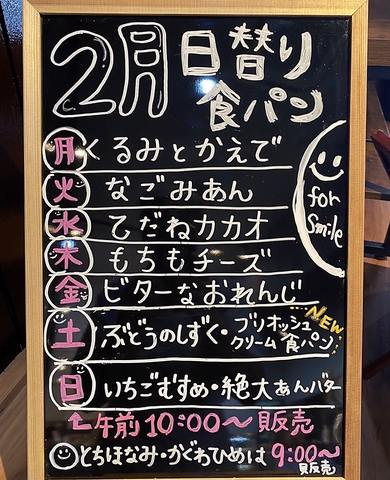 2月 日替り
食パン
for
Smile
月 くるみとかえで
火 なごみあん
水 てだねカカオ
木 もちもチーズ
金 ビターなおれんじ
土 ぶどうのしずく・ブリオッシュ
クリーム食パン NEW
日 いちごむすめ・絶大あんバター
午前10:00〜販売
とちほなみ・かぐわひめは 9:00〜
販売